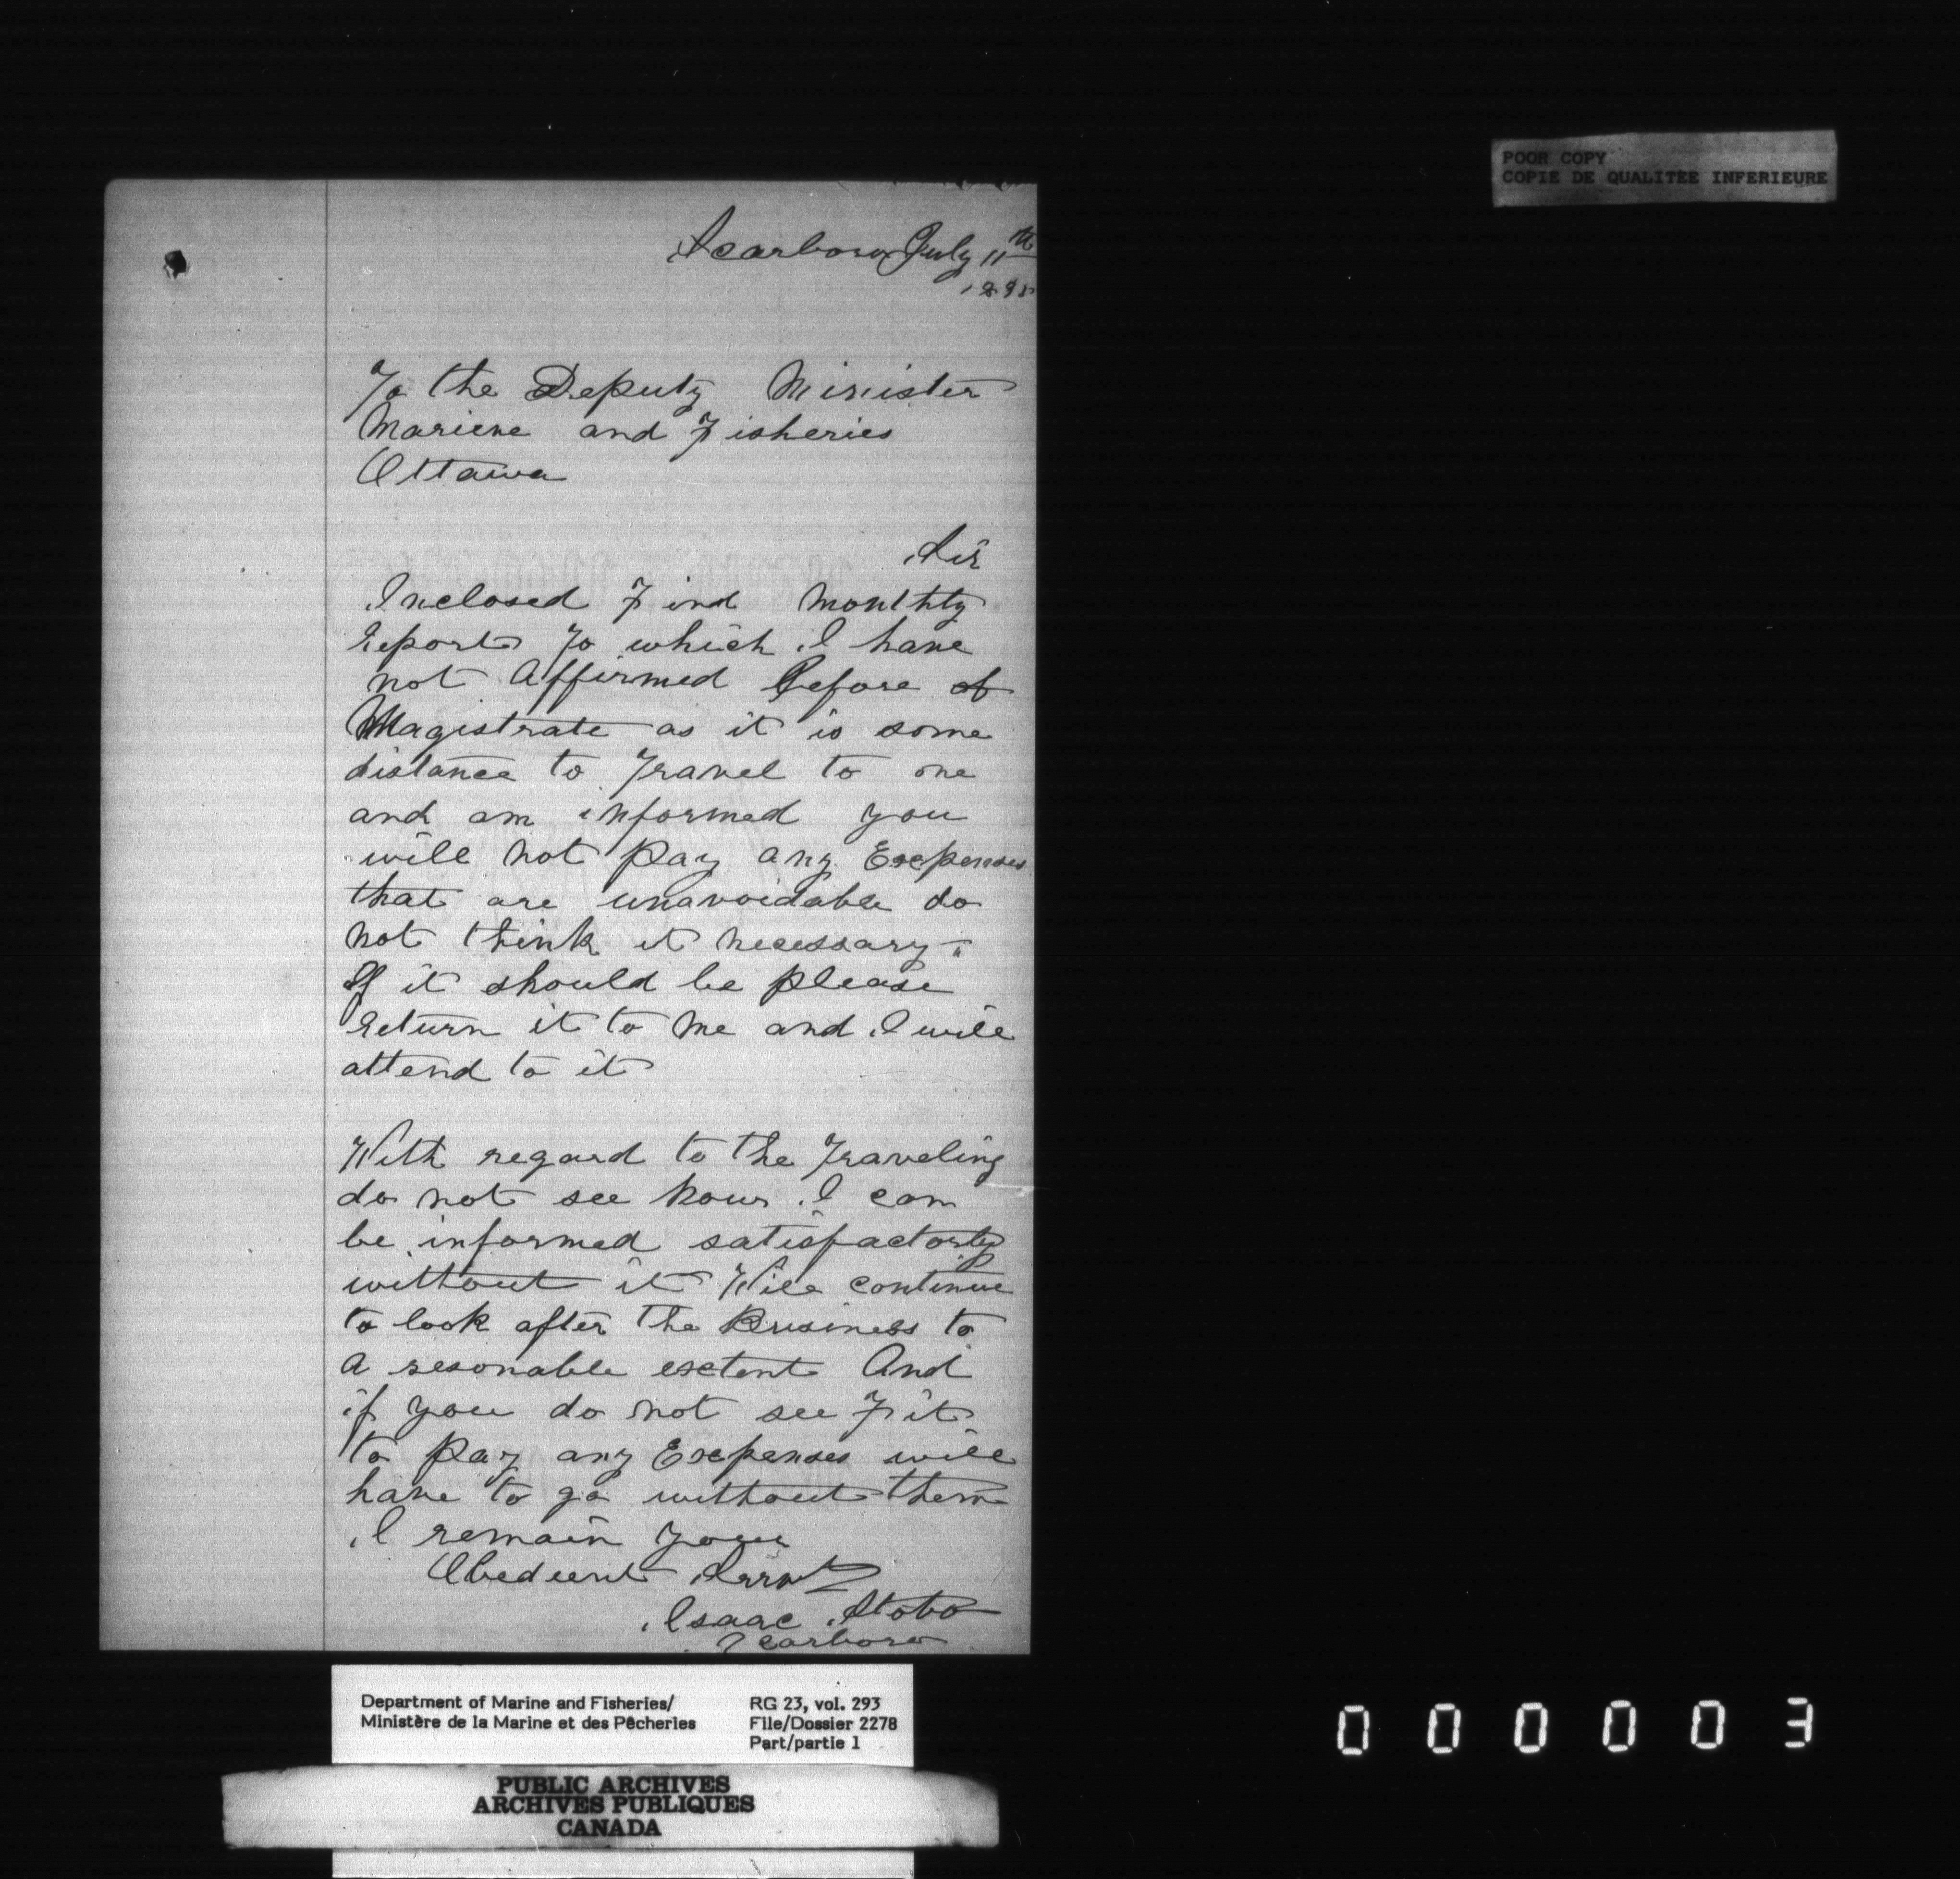 Scarboro July 11th
189
To the Deputy Minister
Mariene and Fisheries
Ottawa
Sir
Inclosed Find Monthly
report To which I have
not Affirmed Before a
Magistrate as it is some
distance to Travel to one
and am informed you
will not Pay any Expenses
that are unavoidable do
not think it necessary
If it should be please
return it to me and I will
attend to it
With regard to the Traveling
do not see how I can
be informed satisfactorly
without it Will continue
to look after the Business to
a resonable extent And
if you do not see Fit
to Pay any Expenses will
have to go without them
I remain your
Obedient Servt
Isaac Stobo
Scarboro
POOR COPY
COPIE DE QUALITEE INFERIEURE
Department of Marine and Fisheries/
Ministère de la Marine et des Pêcheries
RG 23, vol. 293
File/Dossier 2278
Part/partie 1
PUBLIC ARCHIVES
ARCHIVES PUBLIQUES
CANADA
000003